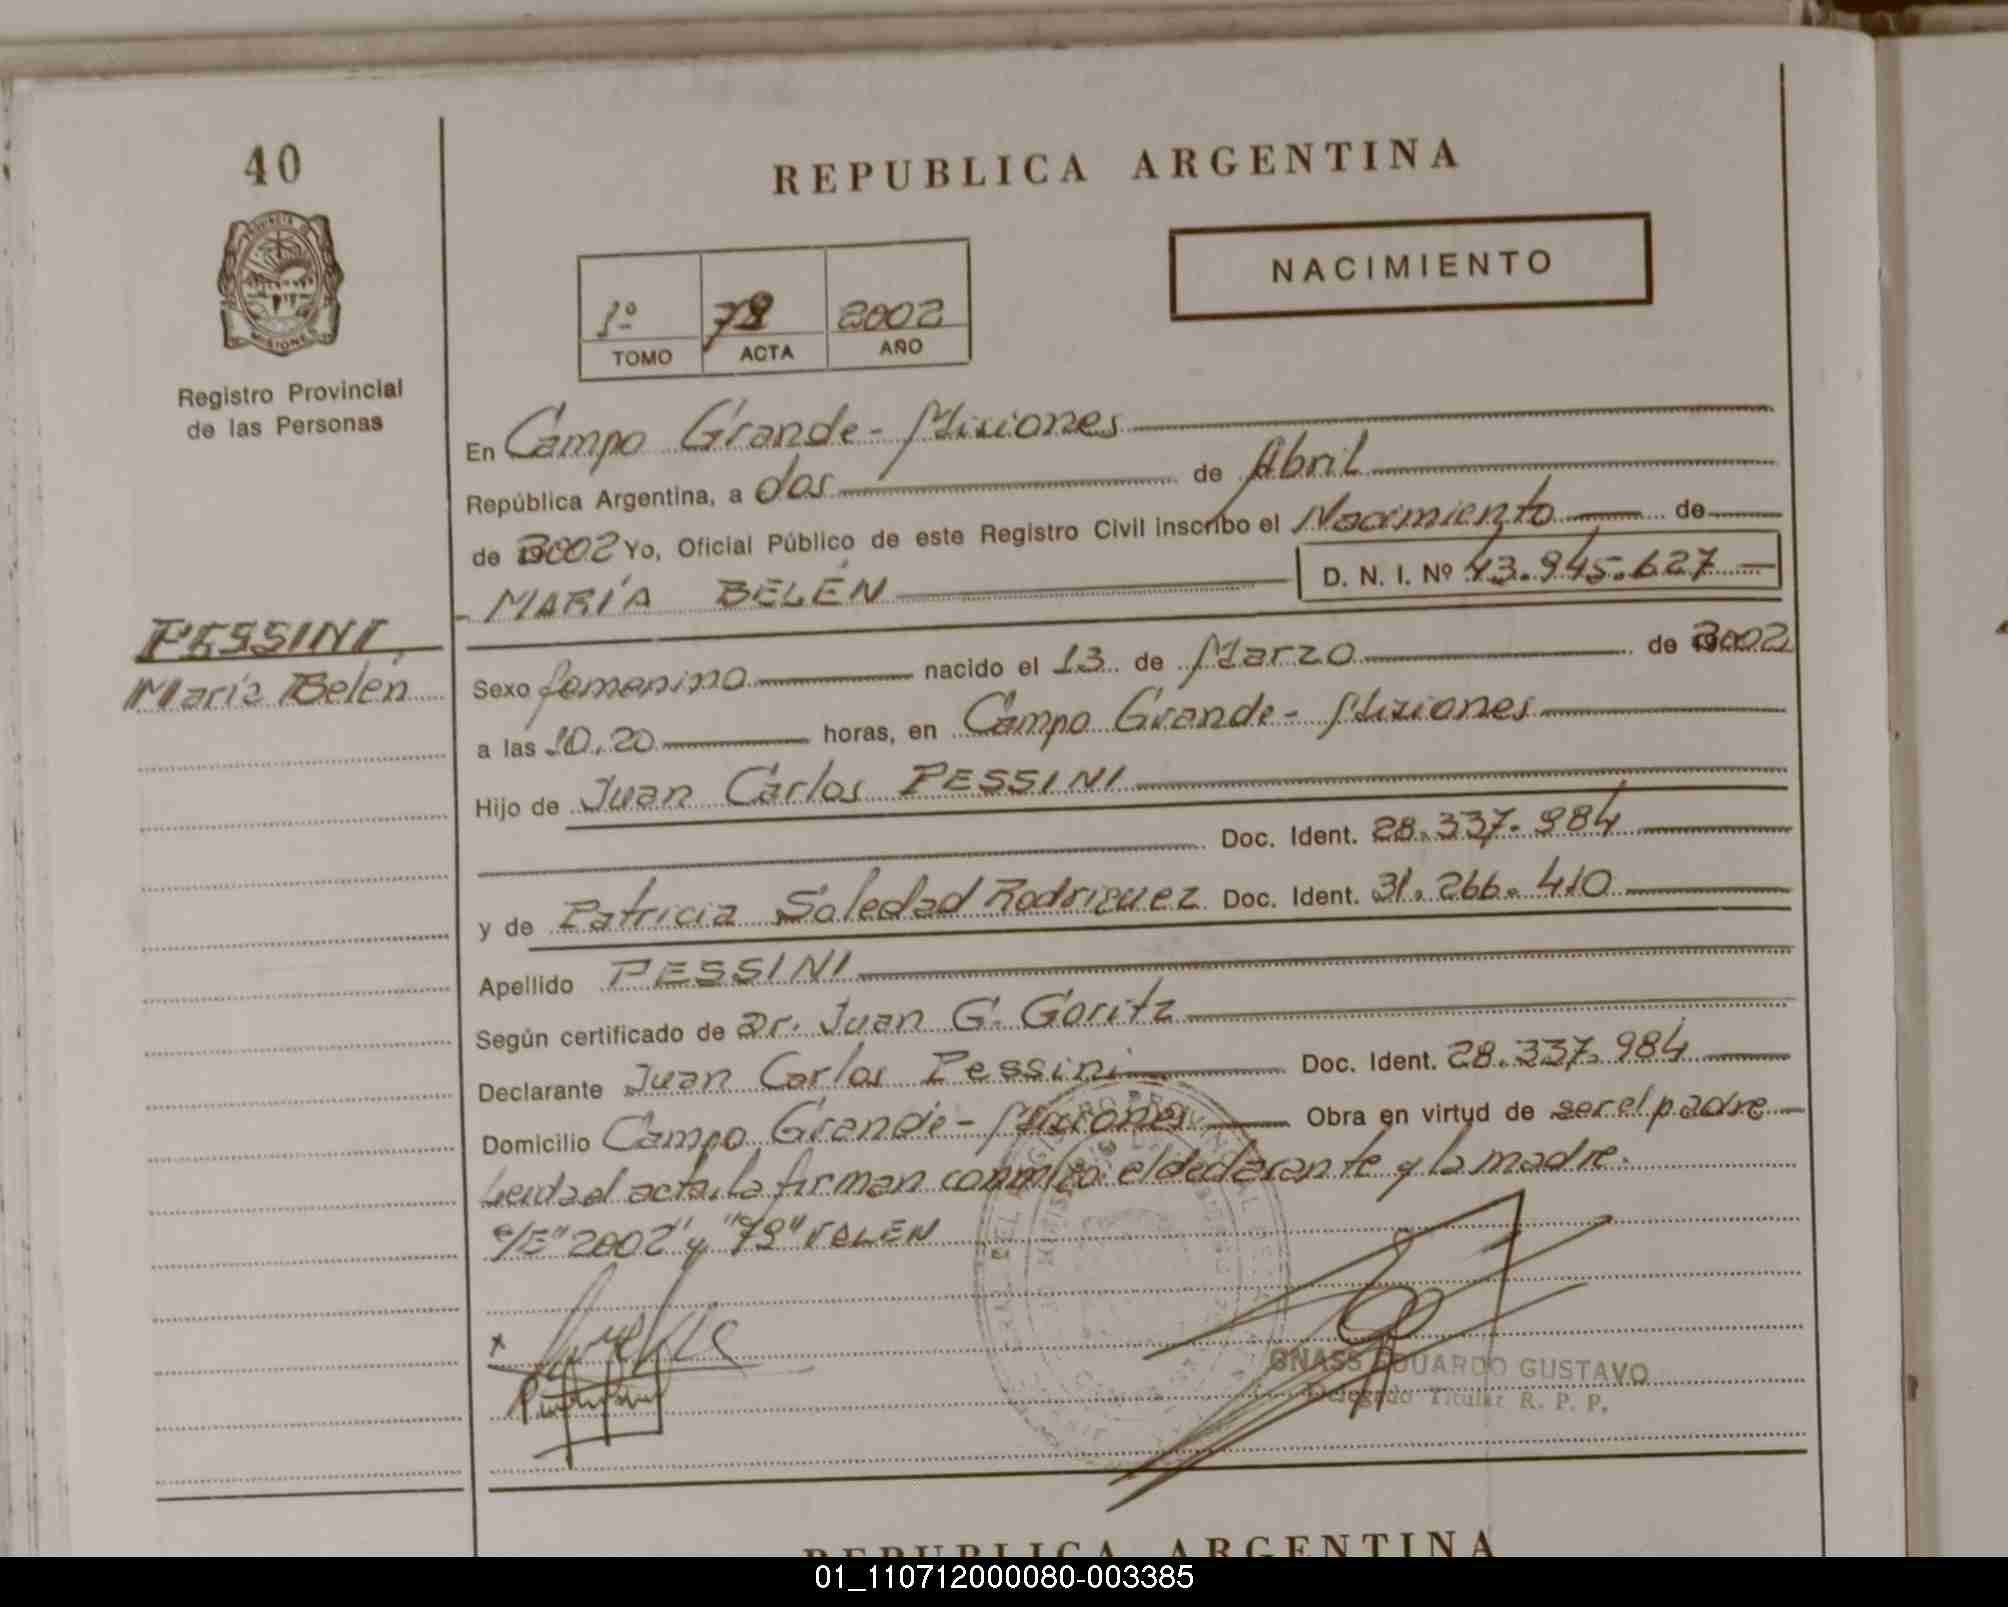 40
REPUBLICA ARGENTINA
NACIMIENTO
1º 79 2002
TOMO ACTA AÑO
Registro Provincial
de las Personas
En Campo Grande - Misiones
República Argentina, a dos de Abril
de 2002 Yo, Oficial Público de este Registro Civil inscribo el Nacimiento de
MARÍA BELÉN D. N. I. Nº 43.945.627
PESSINI,
María Belen
Sexo femenino nacido el 13 de Marzo de 2002
a las 10.20 horas, en Campo Grande - Misiones
Hijo de Juan Carlos PESSINI
Doc. Ident. 28.337.984
y de Patricia Soledad Rodriguez Doc. Ident. 31.266.410
Apellido PESSINI
Según certificado de Dr. Juan G. Goritz
Declarante Juan Carlos Pessini Doc. Ident. 28.337.984
Domicilio Campo Grande - Misiones Obra en virtud de ser el padre
Leida el acta, la firman conmigo el declarante y la madre.
S/E "2002" y "79" VALEN
GNASS EDUARDO GUSTAVO
Delegado Titular R. P. P.
REPUBLICA ARGENTINA
01_110712000080-003385